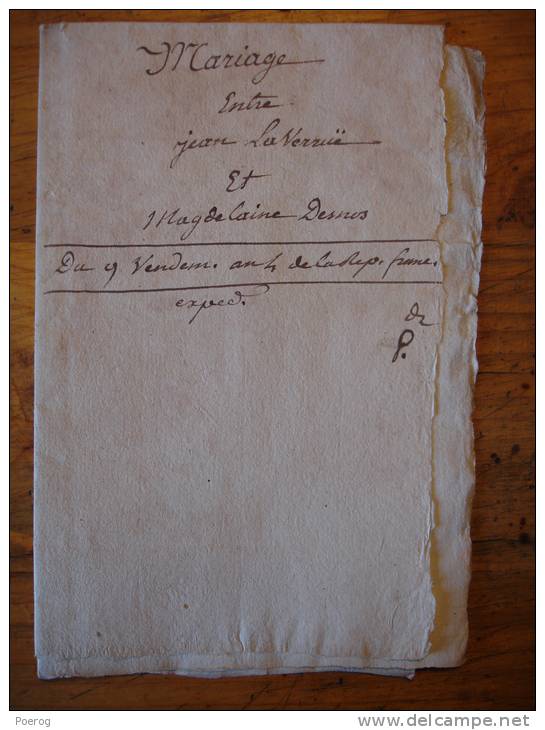 Mariage
Entre
jean LaVerruë
Et
Magdelaine Desnos
Du 9 Vendem. an 4 de la Rep. franc.
exped.
P.
Poerog
www.delcampe.net